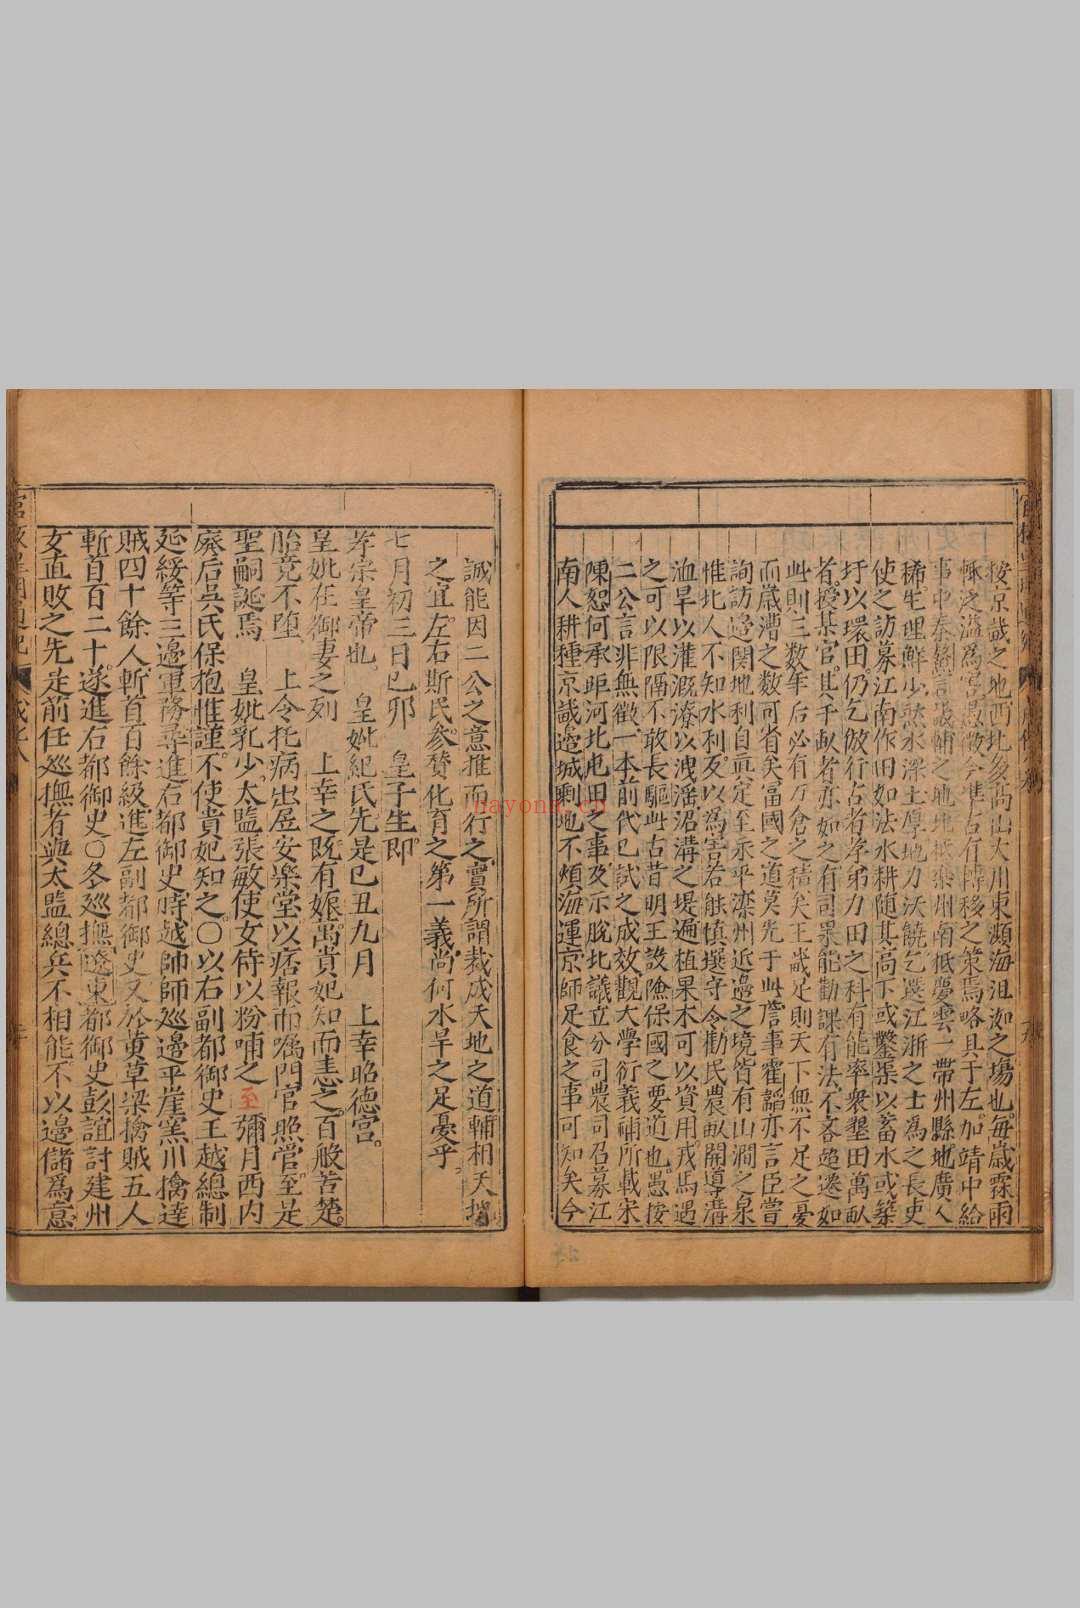 按京畿之地西北多高山大川東瀕海沮洳之塲也。每歲霖雨
輙之溢為害愚嘗今準古有轉移之策焉略具于左。加靖中給
事中秦鰲言張輔之地北抵欒州南低夢雲一帶州縣。地廣人
稀生理鮮少。然水深土厚地力沃饒乞選江浙之士為之長吏
使之訪募江南作田如法水耕随其高下或鑿渠以畜水或築
圩以環田仍乞倣行占者孝弟力田之科有能率衆墾田萬畝
者授某官其千畝者亦如之有司果能勸課有法不吝超遷如
此則三數年后必有万倉之積矣王畿足則天下無不足之憂
而歲漕之数可省矣富國之道莫先于此詹事霍韜亦言臣嘗
詢訪邉関地利自眞定至永平灤州近邉之境皆有山澗之泉
惟北人不知水利反以為害若能慎選守令勸民農畝開導溝
洫旱以灌溉潦以洩潘沼溝之堤遍植果木可以資用戎馬遇
之可以限隔不敢長驅此古昔明王設險保國之要道也。愚按
二公言非無徵一本前代已試之成效觀大學衍義補所載宋
陳恕何承矩河北屯田之事及示脫北議立分司農司召募江
南人耕種京畿邉城剩地不煩海運京師足食之事可知矣今
誠能因二公之意推而行之實所謂裁成天地之道輔相天地
之宜。左右斯民。參賛化育之第一義尚何水旱之足憂乎。
七月初三日己卯 皇子生。即
孝宗皇帝也。 皇妣紀氏先是己丑九月 上幸昭德宫。
皇妣在御妻之列 上幸之既有娠萬貴妃知而恚之百般苦楚。
胎竟不堕。 上令托病出居安樂堂以痞報而嘱門官照管。至是
聖嗣誕焉 皇妣乳少。太監張敏使女侍以粉哺之至彌月西内
廢后吳氏保抱惟謹不使貴妃知之。〇以右副都御史王越總制
延綏等三邉軍務尋進右都御史時越師師巡邉平崖窯川擒達
賊四十餘人斬首百餘級進左副都御史又於黄草梁擒賊五人
斬首百二十遂進右都御史〇冬巡撫遼東都御史彭誼討建州
女直敗之先是前任巡撫者與太監總兵不相能不以邉儲為意